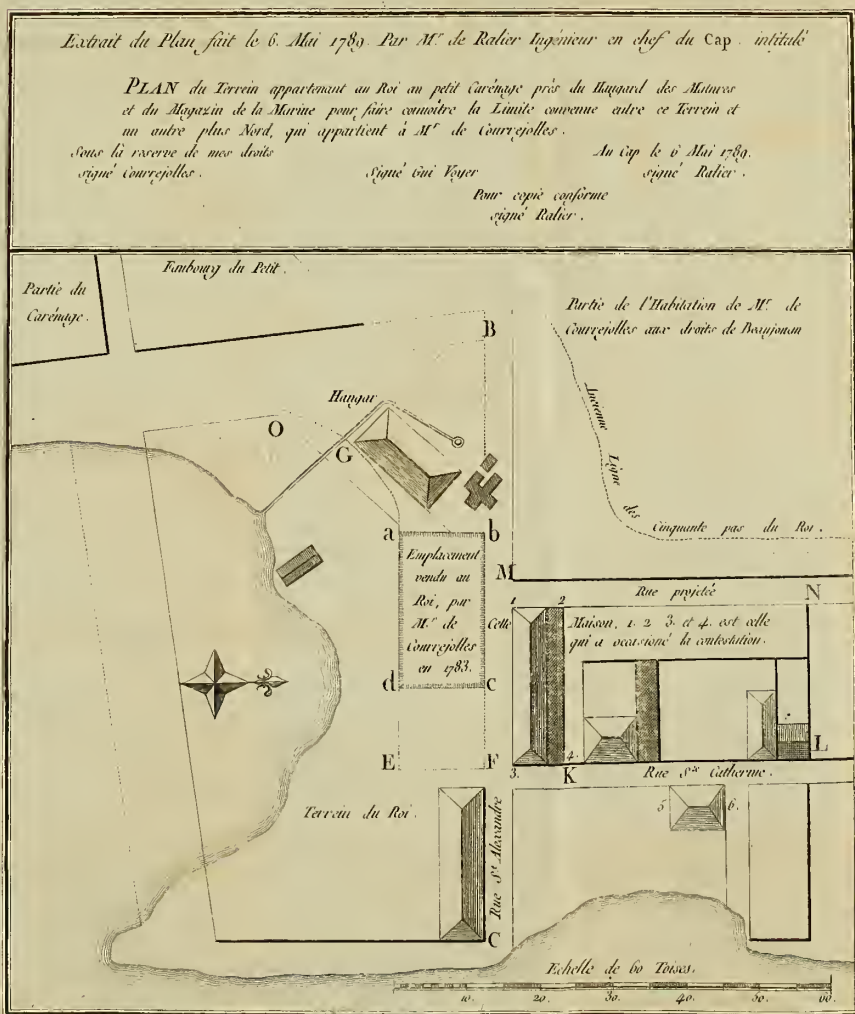 Extrait du Plan fait le 6. Mai 1789. Par Mr. de Ralier Ingénieur en chef du Cap. intitulé
PLAN du Terrein appartenant au Roi au petit Carénage près du Hangard des Matures
et du Magazin de la Marine pour faire connoître la Limite convenue entre ce Terrein et
un autre plus Nord, qui appartient à Mr. de Courrejolles.
Sous la reserve de mes droits
signé Courrejolles.
Signé Gui Voyer
Au Cap le 6 Mai 1789.
signé Ralier.
Pour copie conforme
signé Ralier.
Partie du
Carénage.
Faubourg du Petit.
Partie de l'Habitation de Mr. de
Courrejolles aux droits de Beaujouan
B
Hangar
O
G
Ancienne Ligne des Cinquante pas du Roi.
a
b
Emplacement
vendu au
Roi, par
Mr. de
Courrejolles
en 1783.
M
Rue projetée
N
1
2
Celle
Maison, 1. 2 3. et 4. est celle
qui a occasioné la contestation.
d
c
L
E
F
3.
4.
K
Rue Ste. Catherine.
Terrein du Roi.
Rue St. Alexandre
5
6.
C
Echelle de 60 Toises.
10. 20. 30. 40. 50. 60.